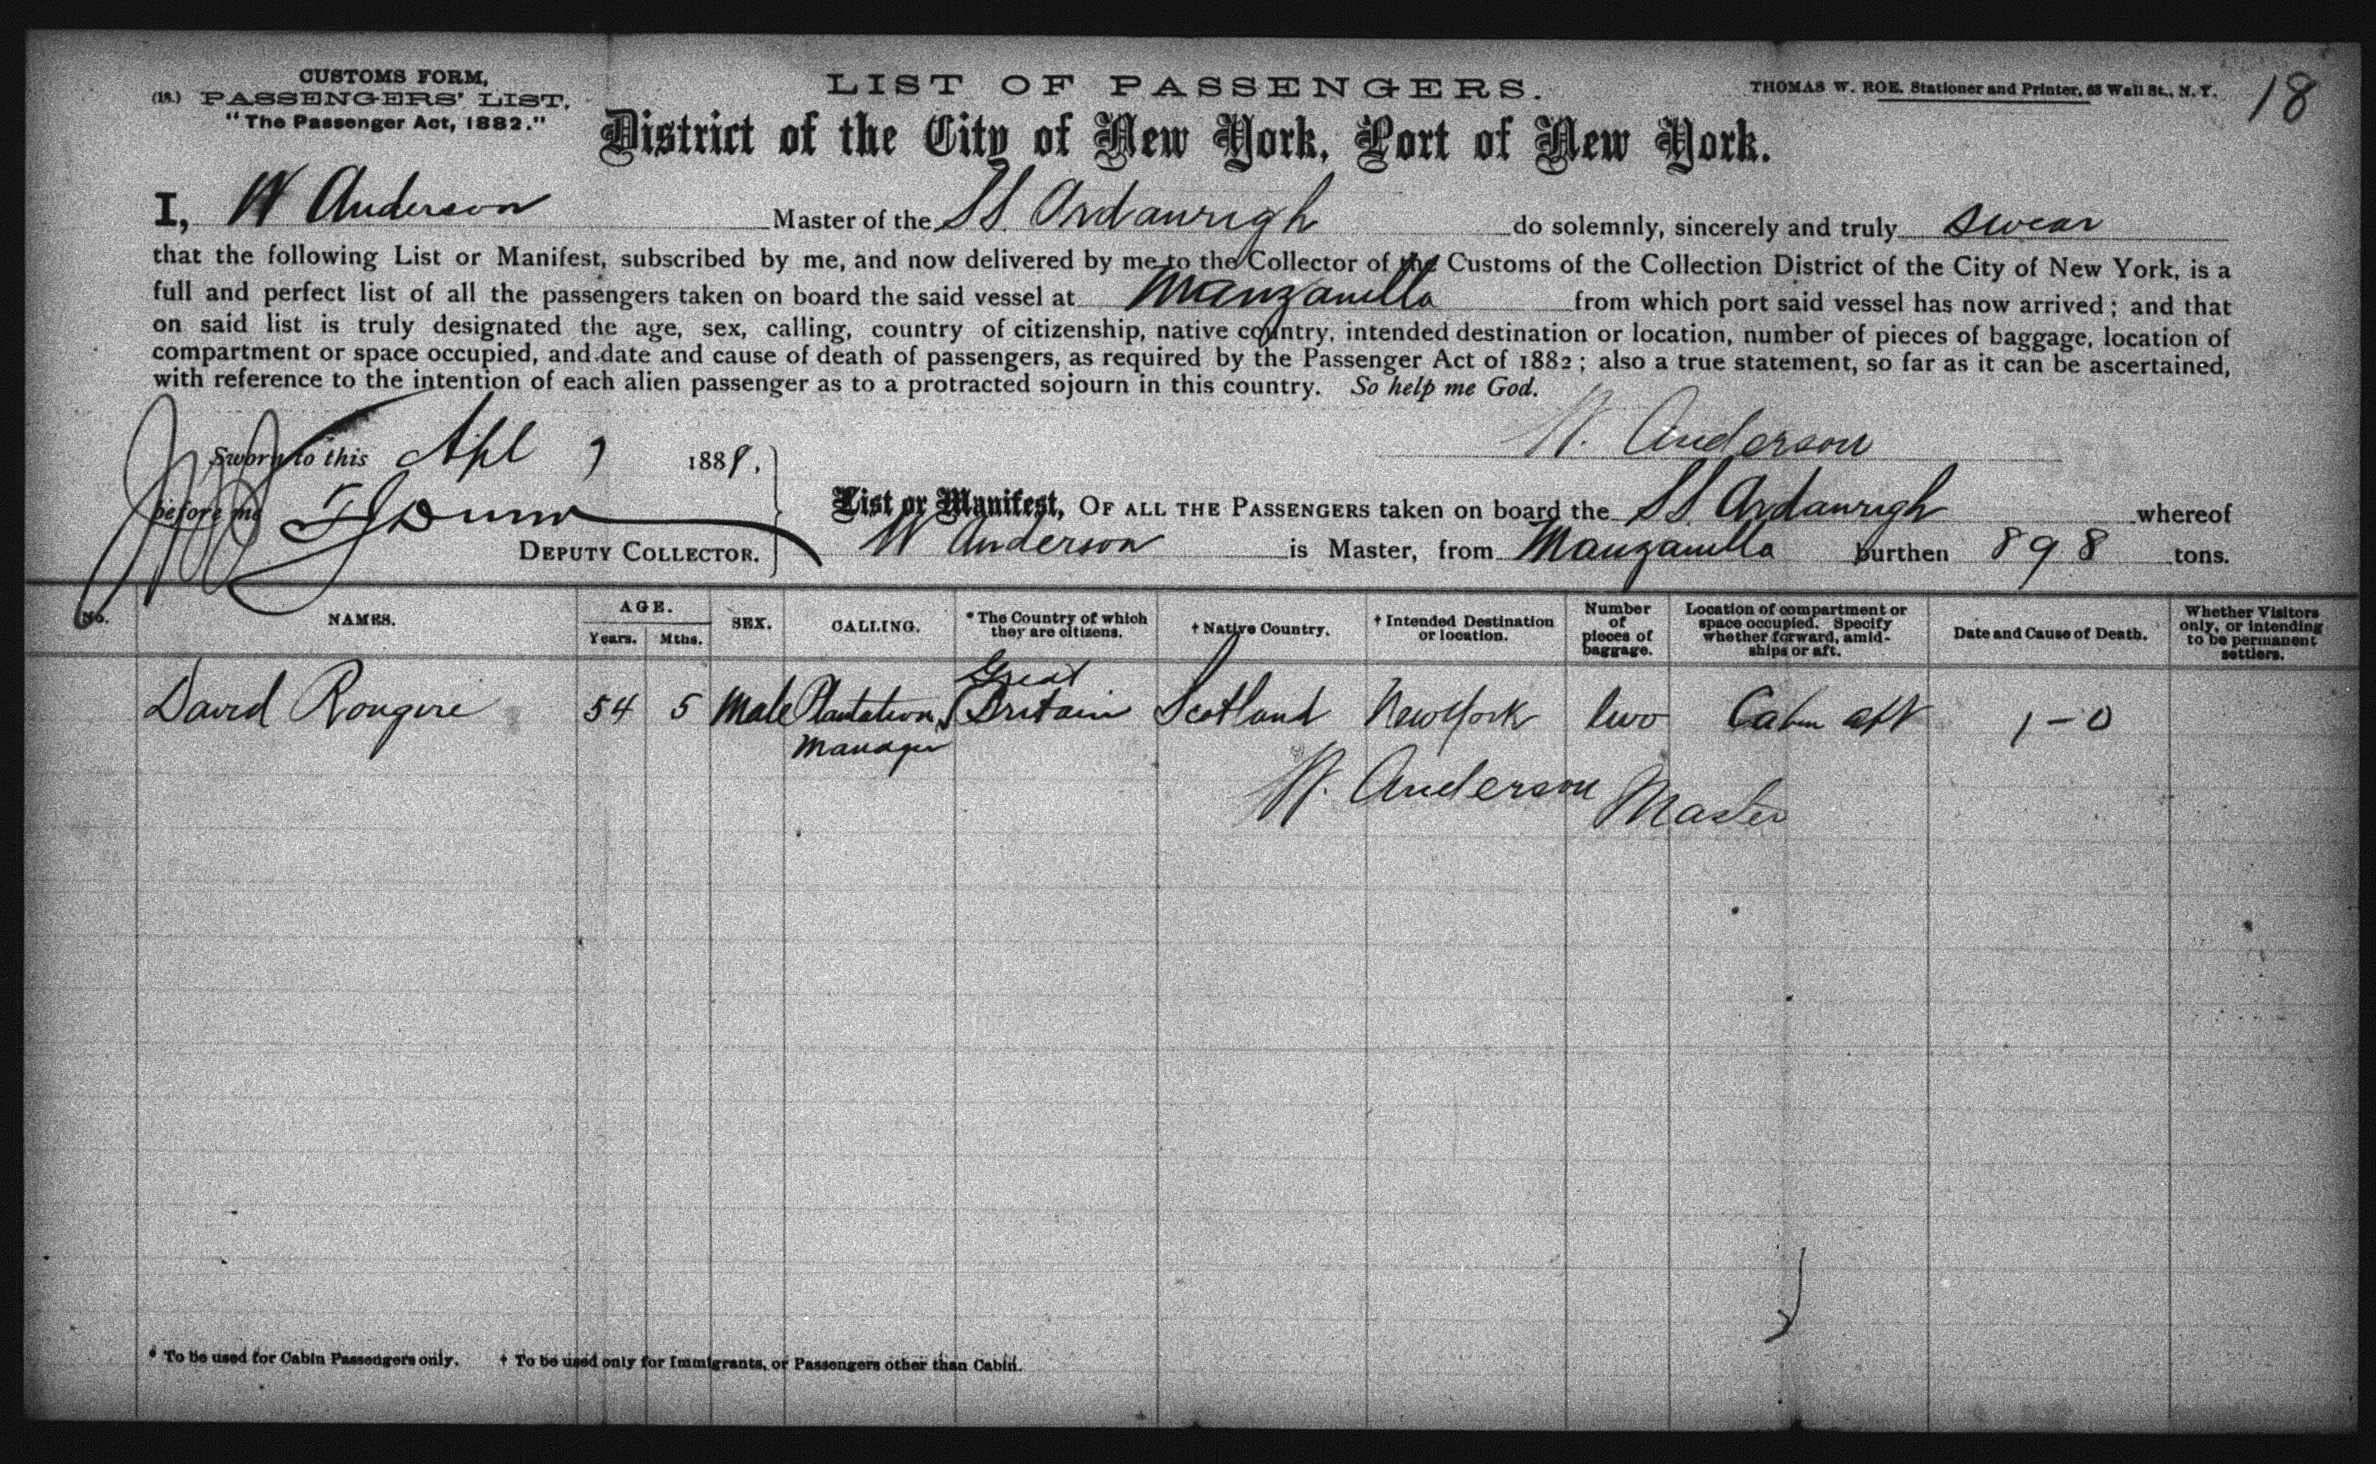 CUSTOMS FORM,
(18.) PASSENGERS' LIST.
"The Passenger Act, 1882."
LIST OF PASSENGERS.
THOMAS W. ROE, Stationer and Printer, 68 Wall St., N. Y.
18
District of the City of New York, Port of New York.
I, W Anderson Master of the SS. Ardanrigh do solemnly, sincerely and truly swear
that the following List or Manifest, subscribed by me, and now delivered by me to the Collector of the Customs of the Collection District of the City of New York, is a
full and perfect list of all the passengers taken on board the said vessel at Manzanilla from which port said vessel has now arrived; and that
on said list is truly designated the age, sex, calling, country of citizenship, native country, intended destination or location, number of pieces of baggage, location of
compartment or space occupied, and date and cause of death of passengers, as required by the Passenger Act of 1882; also a true statement, so far as it can be ascertained,
with reference to the intention of each alien passenger as to a protracted sojourn in this country. So help me God.
W. Anderson
Sworn to this Apl 188
before me
DEPUTY COLLECTOR.
List or Manifest, OF ALL THE PASSENGERS taken on board the SS. Ardanrigh whereof
W Anderson is Master, from Manzanilla burthen 898 tons.
No. NAMES. AGE. Years. Mths. SEX. CALLING. * The Country of which they are citizens. † Native Country. † Intended Destination or location. Number of pieces of baggage. Location of compartment or space occupied. Specify whether forward, amid-ships or aft. Date and Cause of Death. Whether Visitors only, or intending to be permanent settlers.
David 54 5 Male Plantation Manager Great Britain Scotland New York two Cabin aft 1-0
W. Anderson Master
* To be used for Cabin Passengers only. † To be used only for Immigrants, or Passengers other than Cabin.